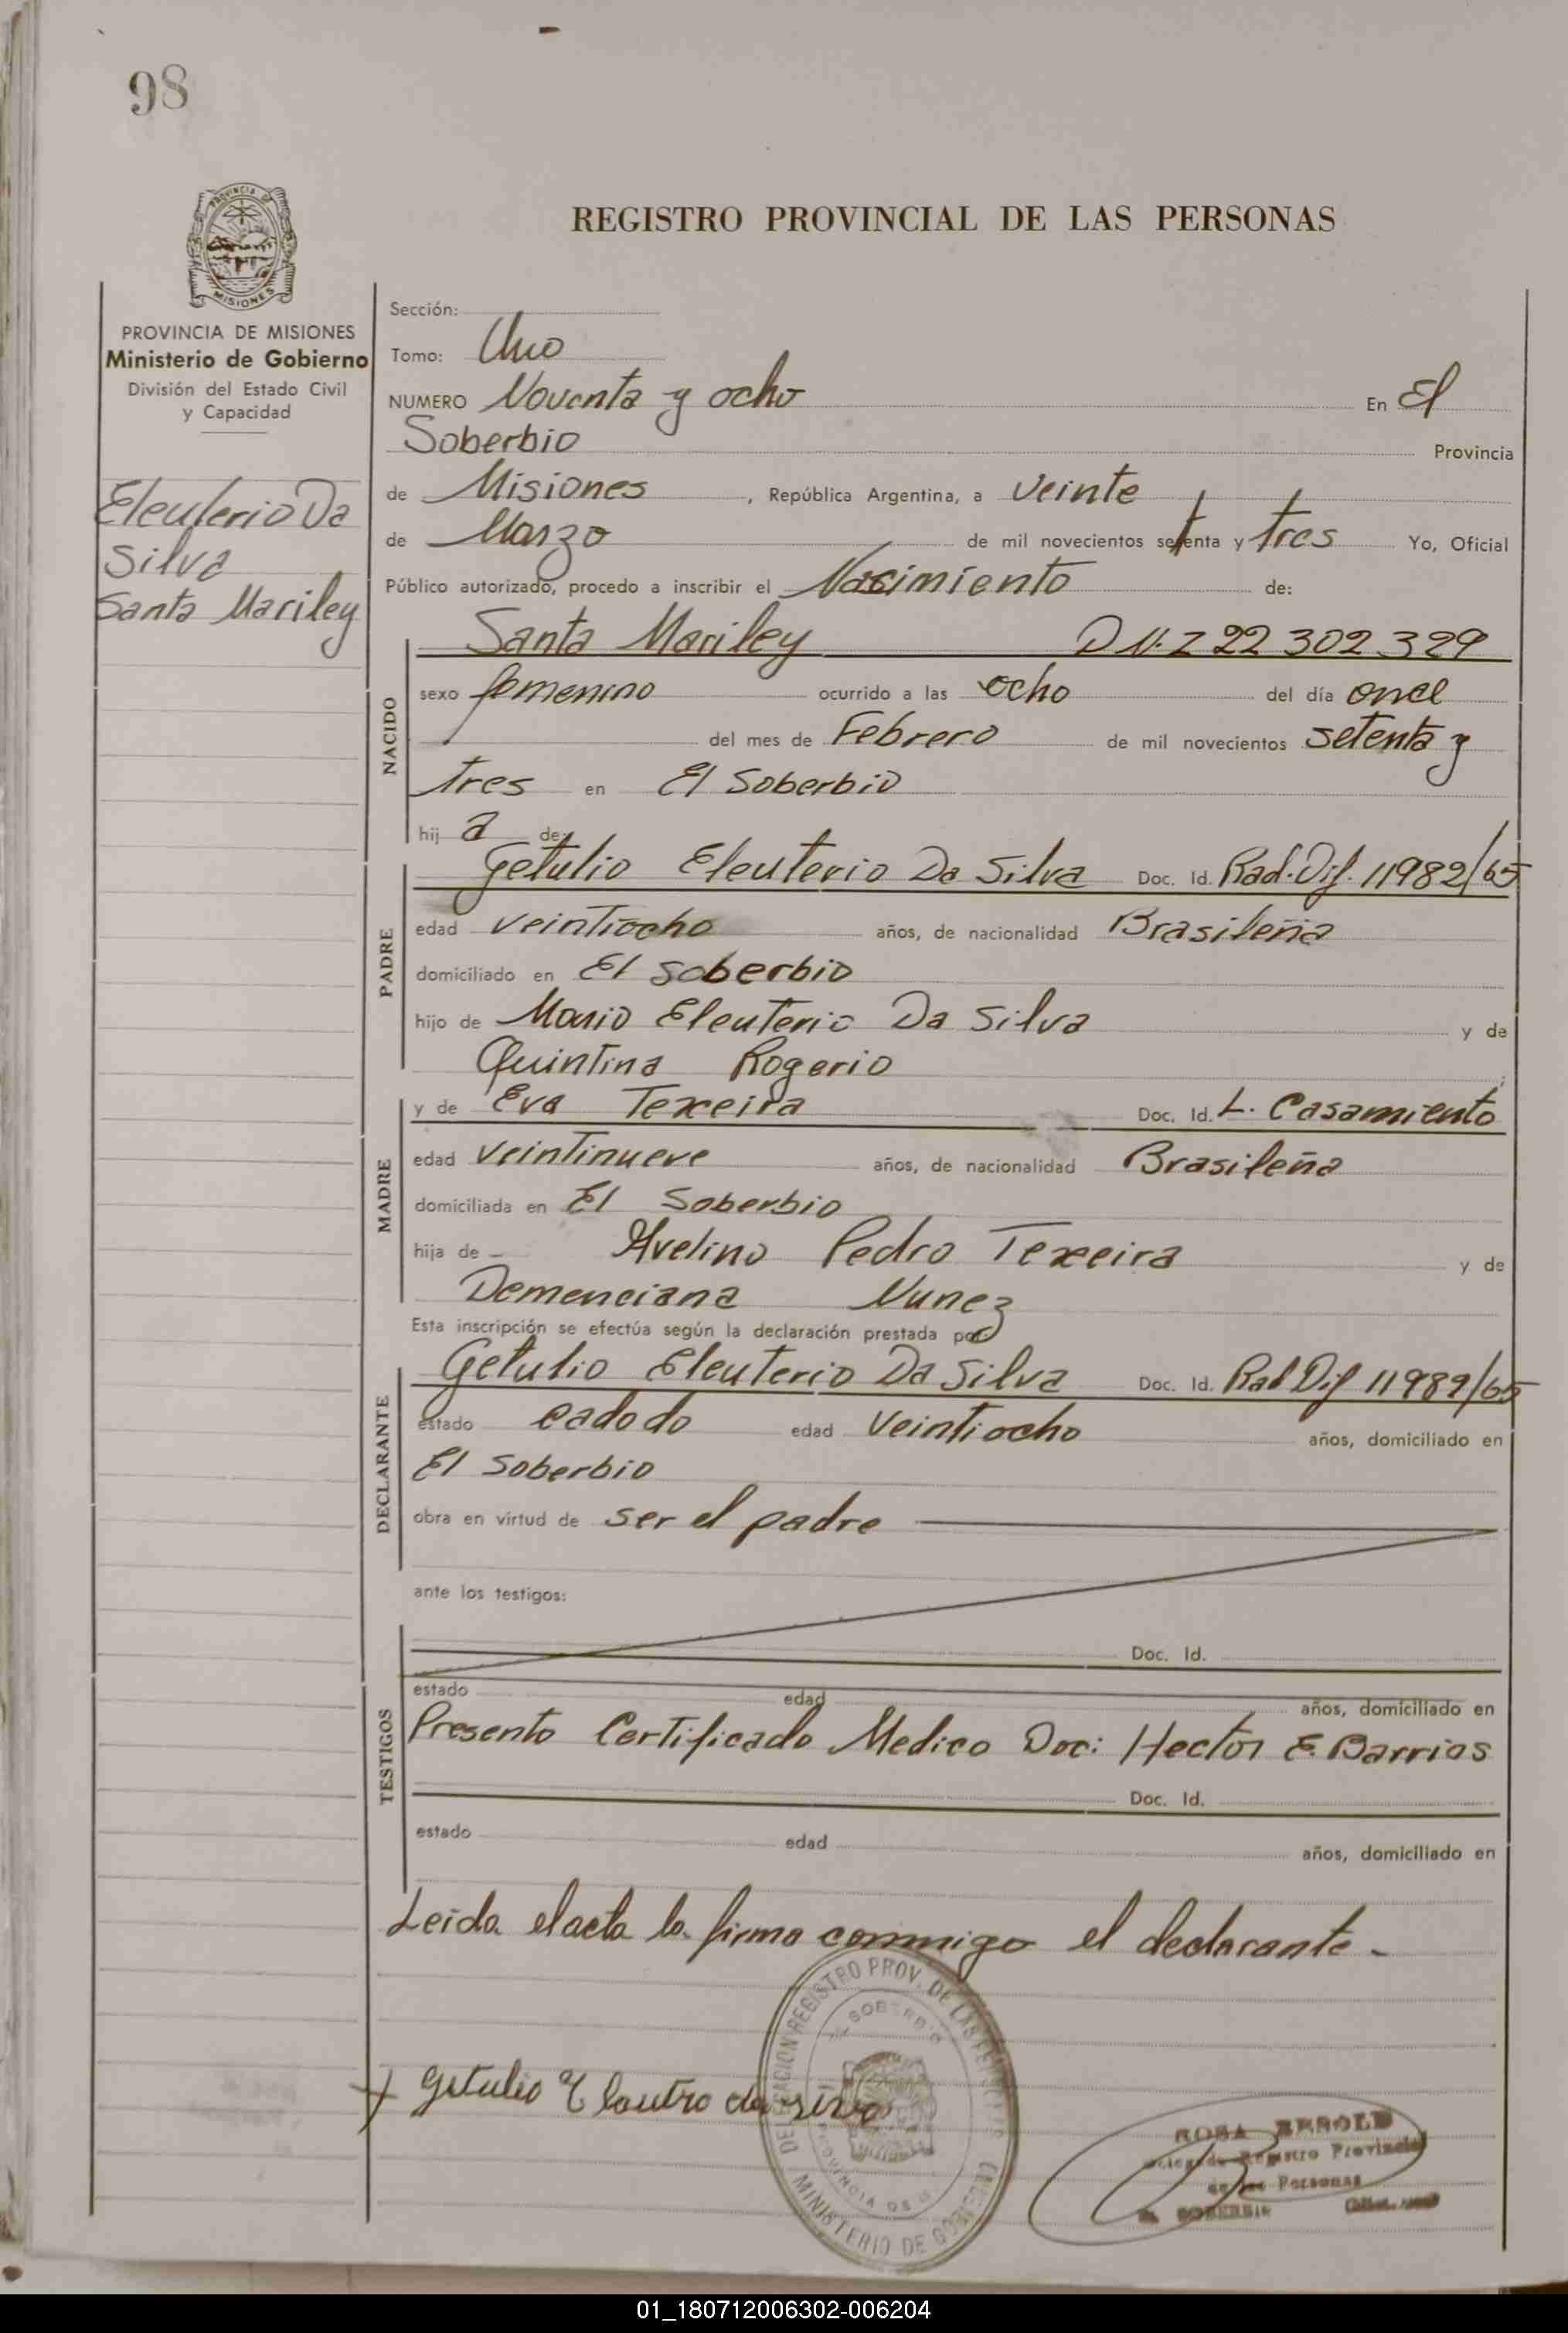 98
PROVINCIA DE
MISIONES
REGISTRO PROVINCIAL DE LAS PERSONAS
PROVINCIA DE MISIONES
Ministerio de Gobierno
División del Estado Civil
y Capacidad
Eleuterio Da
Silva
Santa Mariley
Sección:
Tomo: Uno
NUMERO Noventa y ocho En El
Soberbio Provincia
de Misiones, República Argentina, a Veinte
de Marzo de mil novecientos setenta y tres Yo, Oficial
Público autorizado, procedo a inscribir el Nacimiento de:
NACIDO
Santa Mariley D N. I 22 302 329
sexo femenino ocurrido a las ocho del día once
del mes de Febrero de mil novecientos setenta y
tres en El Soberbio
hij a de:
PADRE
Getulio Eleuterio Da Silva Doc. Id. Rad. Dif. 11982/65
edad veintiocho años, de nacionalidad Brasileña
domiciliado en El soberbio
hijo de Mario Eleuterio Da Silva y de
Quintina Rogerio
MADRE
y de Eva Texeira Doc. Id. L. Casamiento
edad veintinueve años, de nacionalidad Brasileña
domiciliada en El Soberbio
hija de Avelino Pedro Texeira y de
Demenciana Nunez
Esta inscripción se efectúa según la declaración prestada por
DECLARANTE
Getulio Eleuterio Da Silva Doc. Id. Rad Dif 11982/65
estado cadodo edad Veintiocho años, domiciliado en
El Soberbio
obra en virtud de ser el padre
ante los testigos:
TESTIGOS
Doc. Id.
estado edad años, domiciliado en
Presento Certificado Medico Doc: Hector E. Barrios
Doc. Id.
estado edad años, domiciliado en
Leida el acta la firma conmigo el declarante.
DELEGACION REGISTRO PROV. DE LAS PERSONAS
EL SOBERBIO
PROVINCIA DE
MINISTERIO DE GOBIERNO
Getulio
ROSA
Registro Provincial
de las Personas
SOBERBIO
01_180712006302-006204